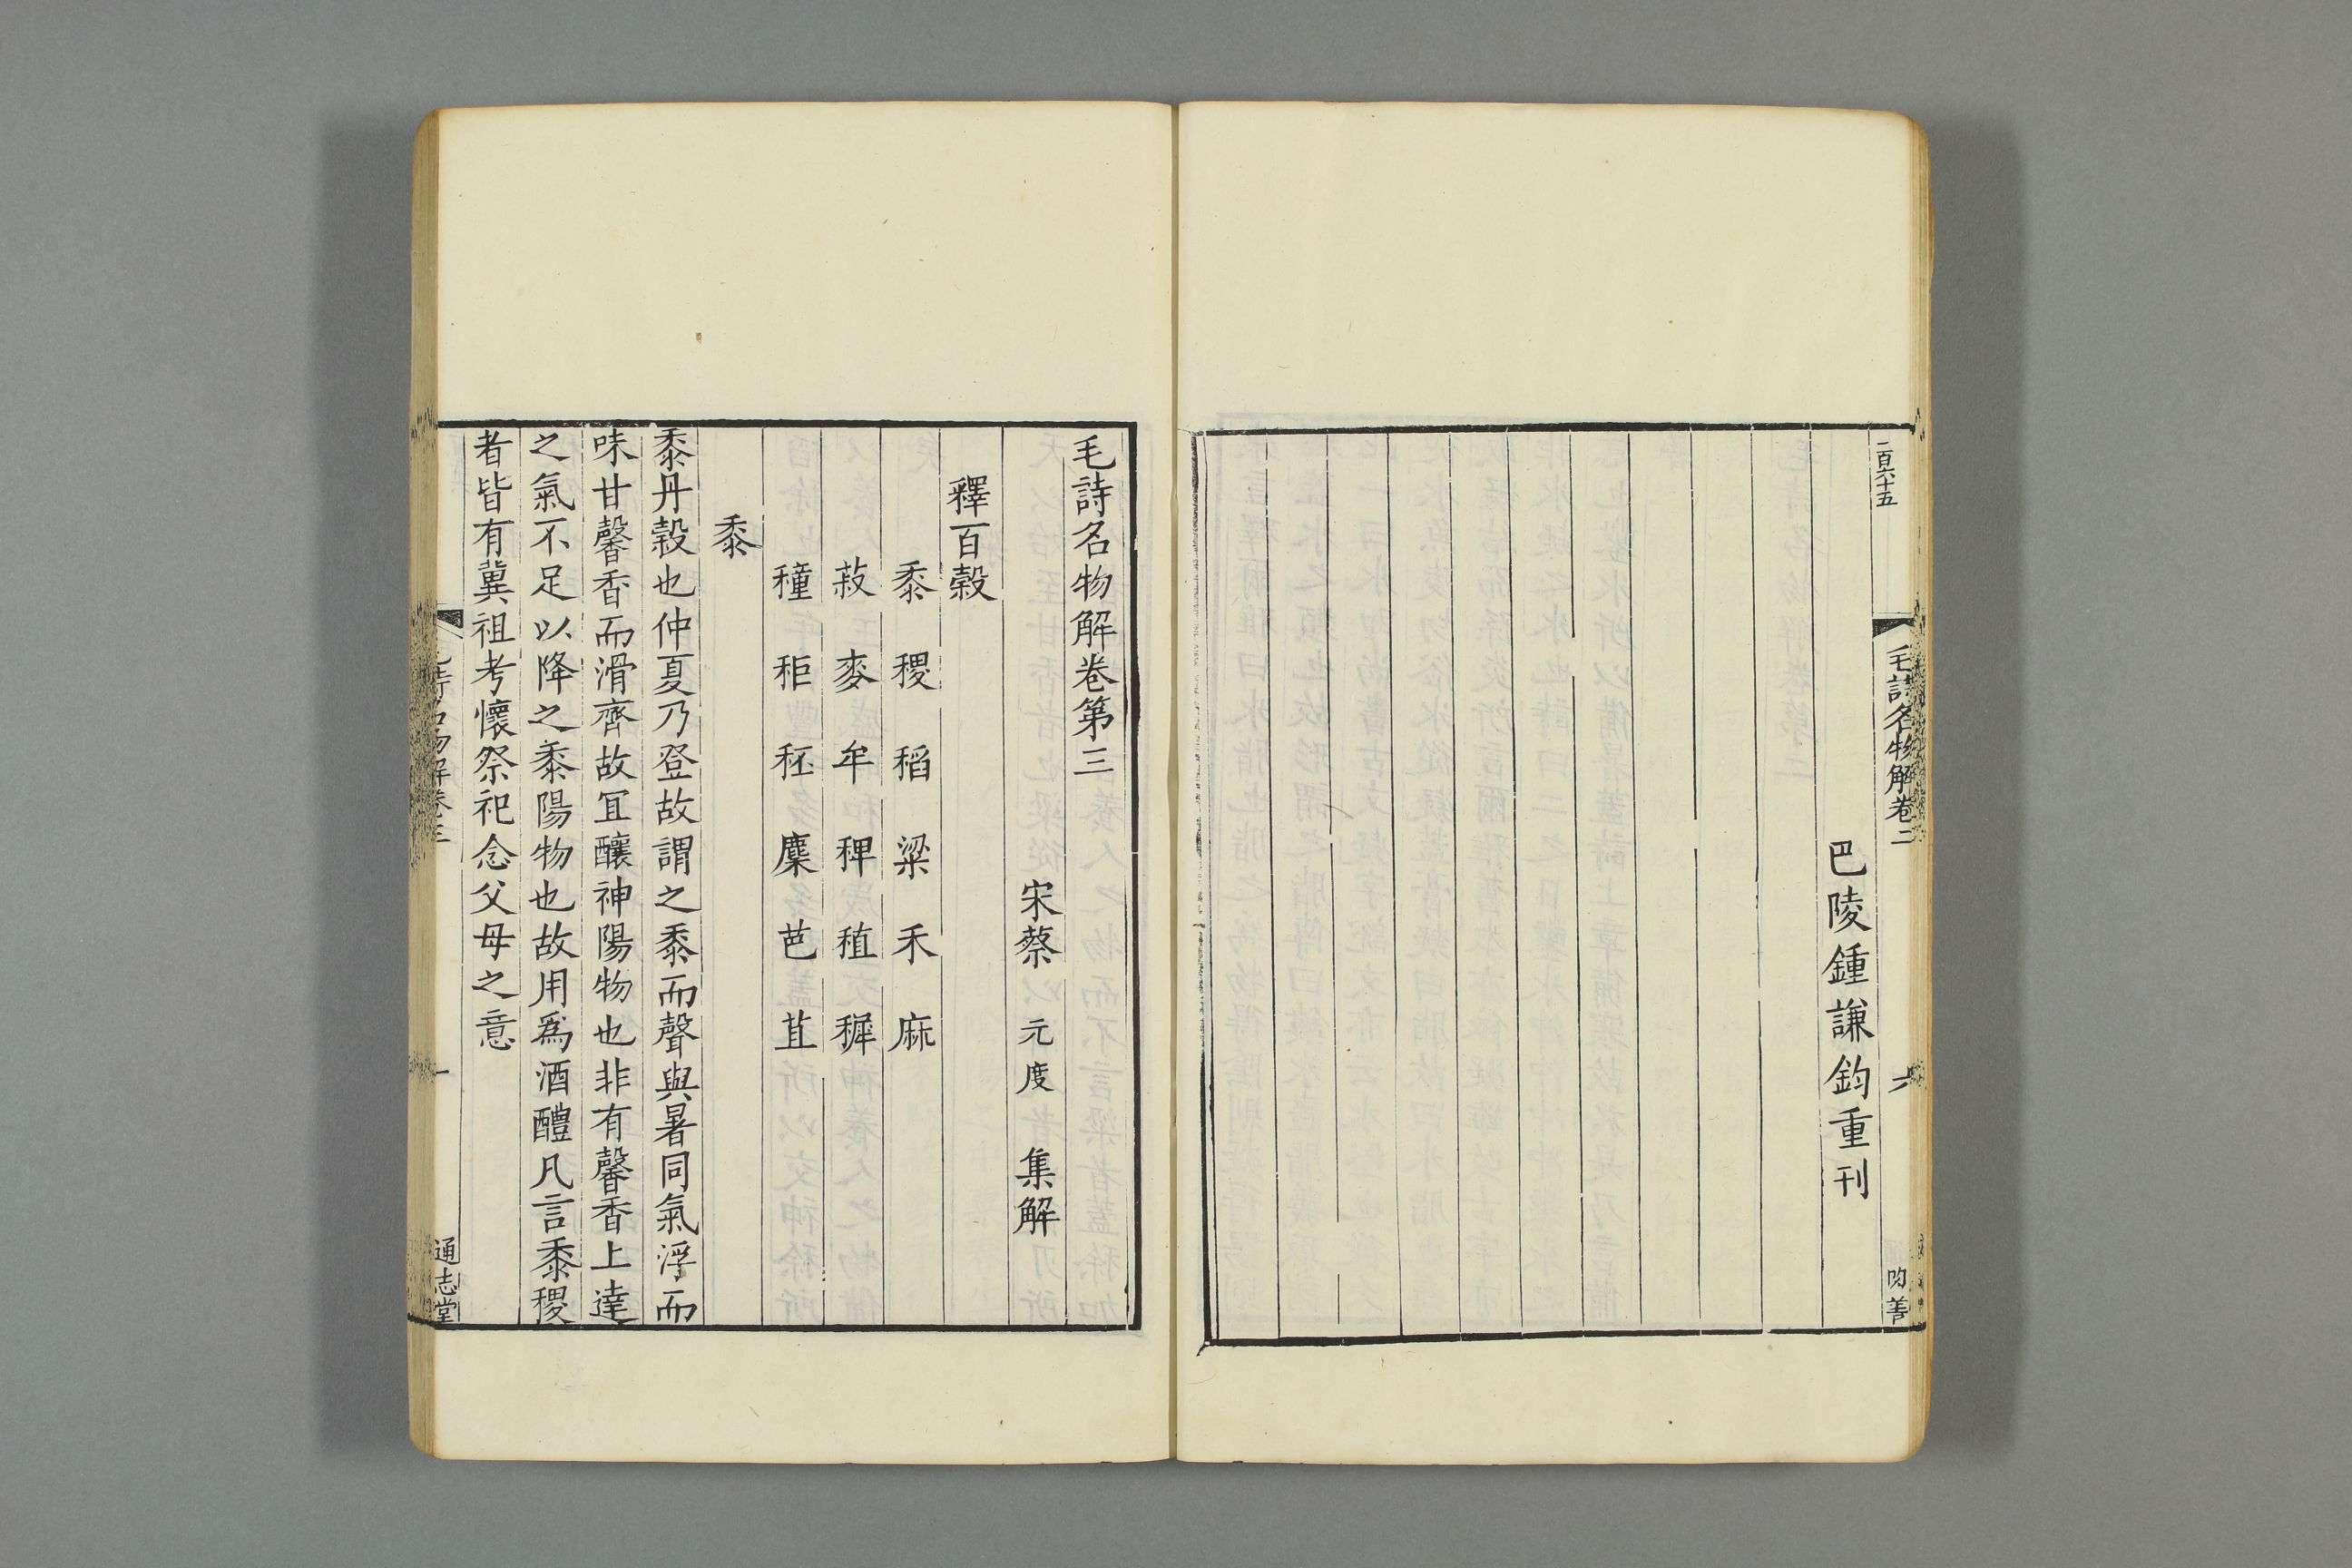 二百六十五
毛詩名物解卷二
六
巴陵鍾謙鈞重刊
毛詩名物解卷第三
宋蔡 元度 集解
釋百穀
黍 稷 稻 粱 禾 麻
菽 麥 牟 稗 稙 穉
穜 秬 秠 穈 芑 苴
黍
黍丹穀也仲夏乃登故謂之黍而聲與暑同氣浮而
味甘馨香而滑齊故冝釀神陽物也非有馨香上達
之氣不足以降之黍陽物也故用爲酒醴凡言黍稷
者皆有冀祖考懷祭祀念父母之意
一
通志堂